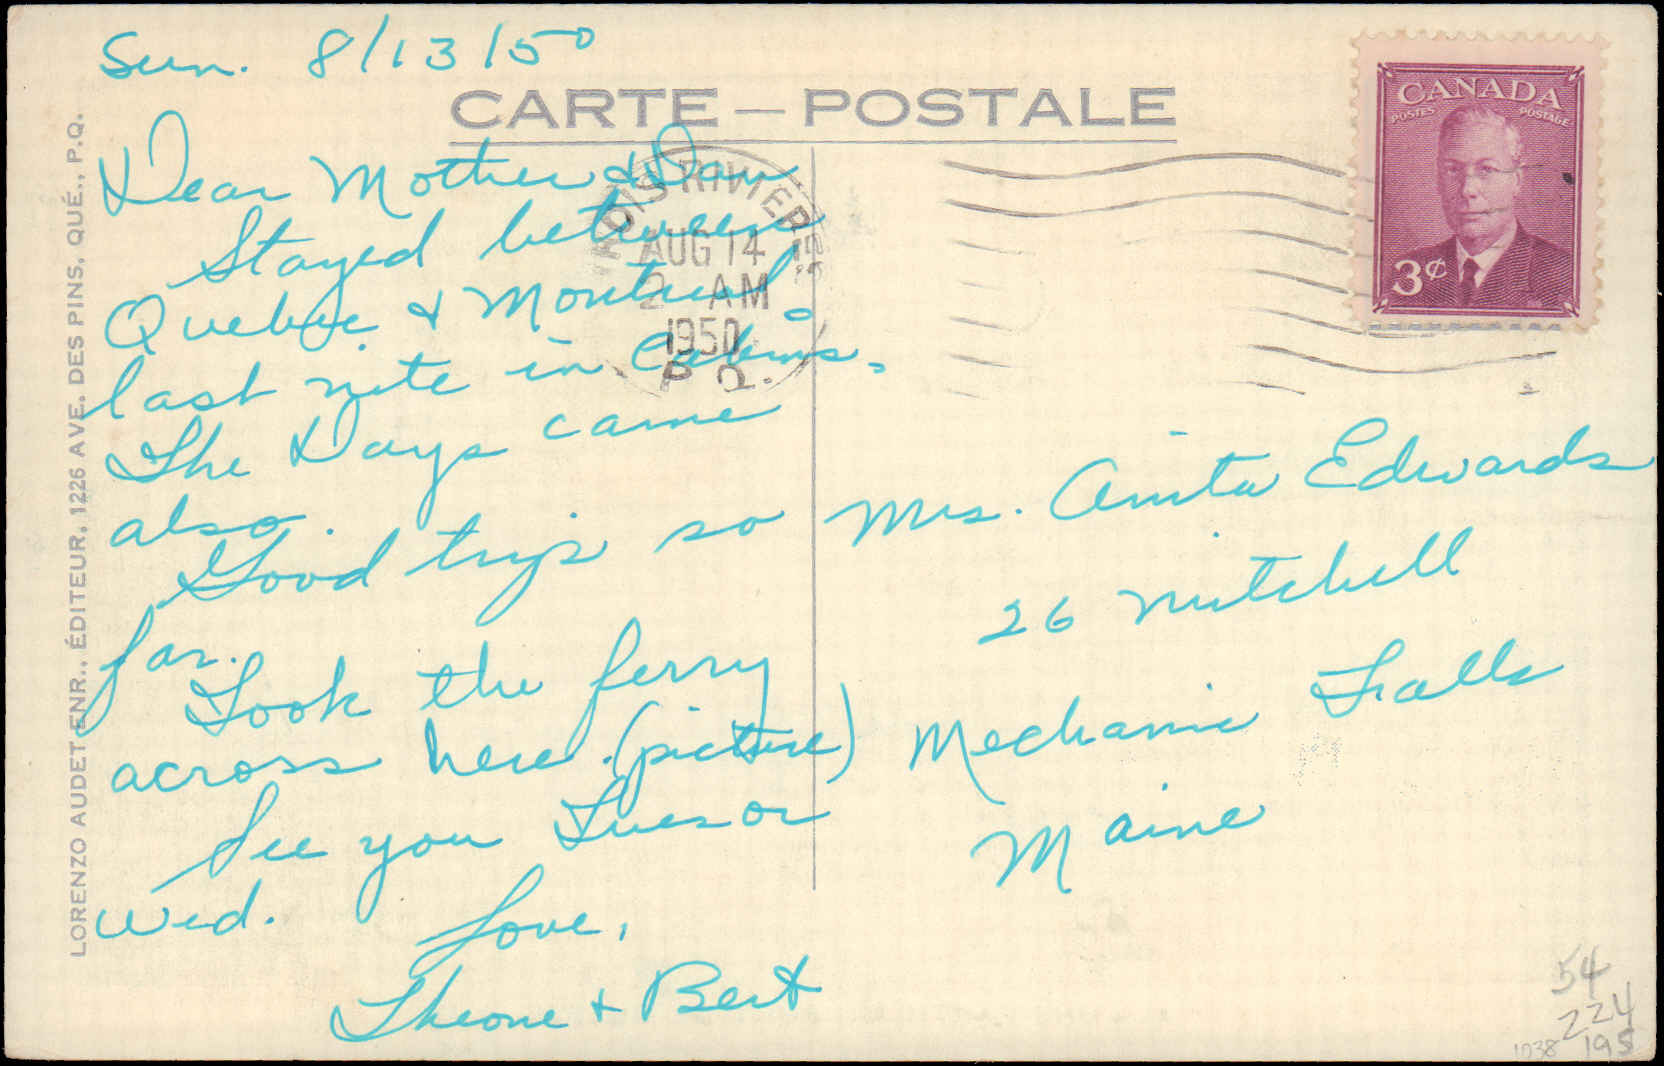 Sun. 8/13/50
CARTE — POSTALE
CANADA
POSTES POSTAGE
3¢
TROIS RIVIERES
AUG 14
2 AM
1950
P.Q.
Dear Mother & Dan
Stayed between
Quebec & Montreal
last nite in Cabins.
The Days came
also.
Good trip so
far.
Took the ferry
across here. (picture)
See you Tues or
Wed.
Love,
Theone & Bert
Mrs. Anita Edwards
26 Mitchell
Mechanic Falls
Maine
LORENZO AUDET ENR., ÉDITEUR, 1226 AVE. DES PINS, QUÉ., P.Q.
54
224
1038 195